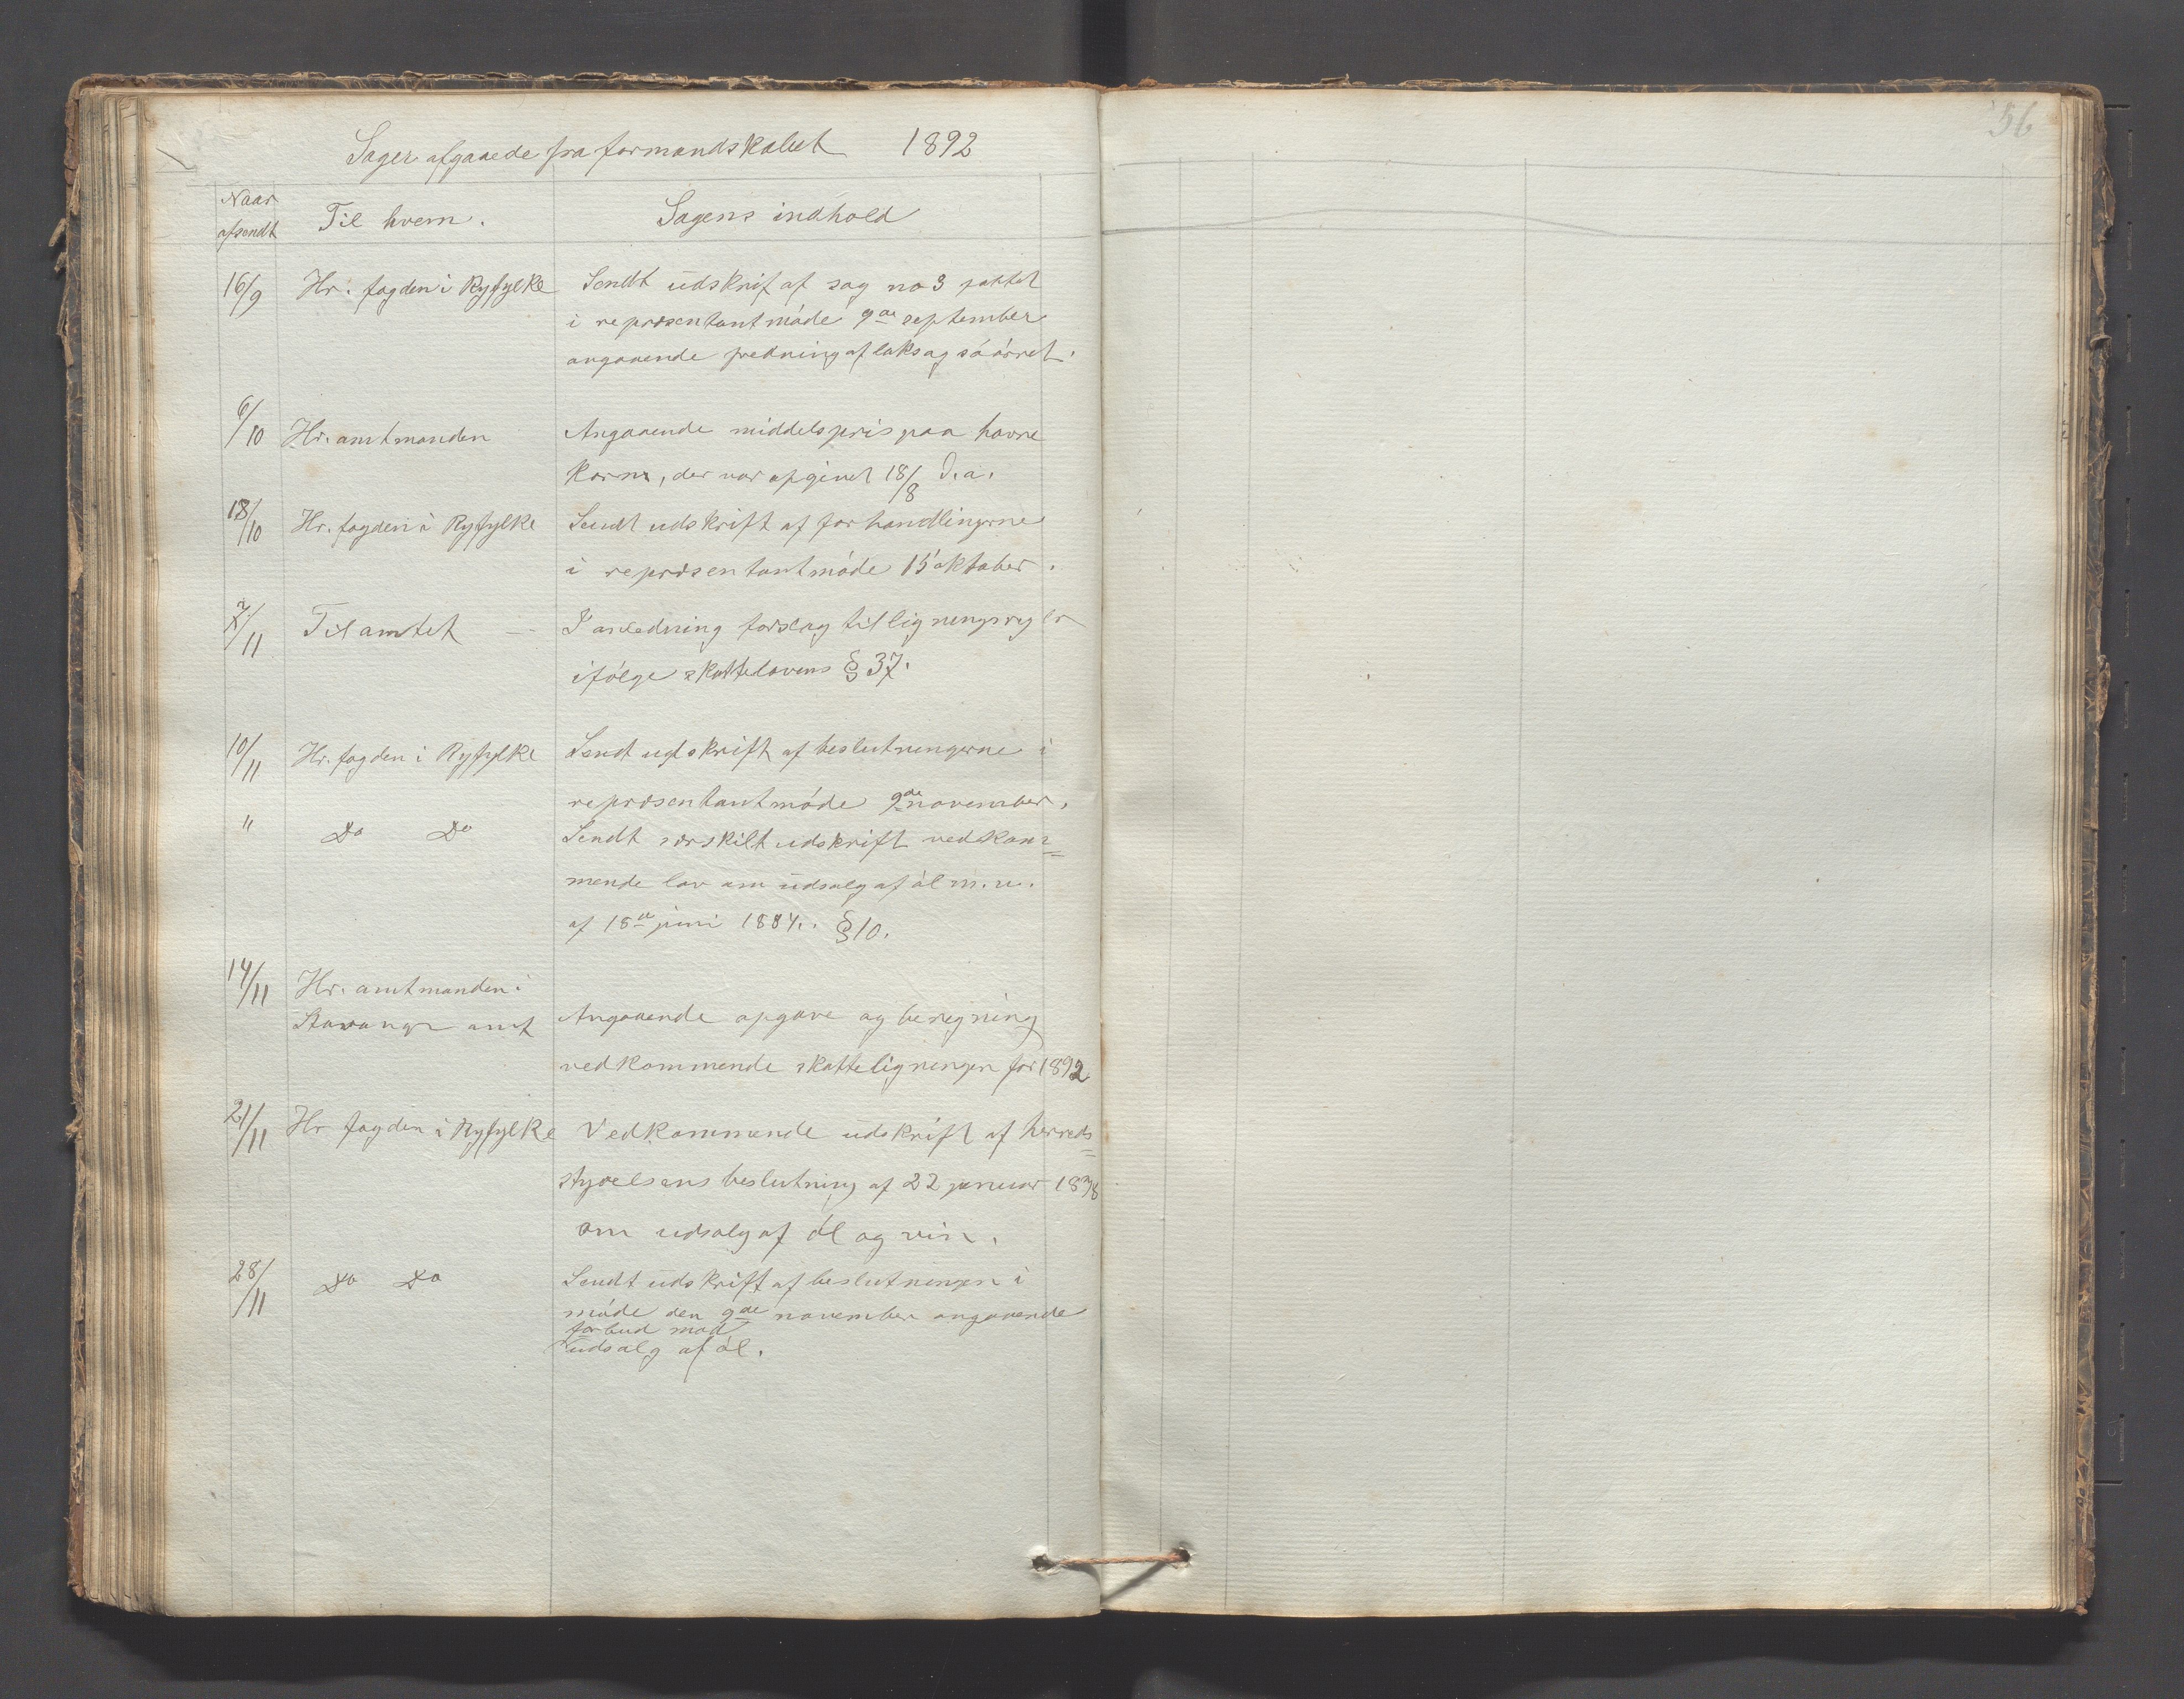 56
Sager afgaaede fra formandskabet 1892
Naar
afsendt
Til hvem.
Sagens indhold
16/9 Hr. fogden i Ryfylke Sendt udskrif af sag no 3 pattet
i repræsentantmöde 9de september
angaaende fredning af laks og söörret.
6/10 Hr. amtmanden Angaaende middelspris paa havre
korn, der var opgivet 18/8 d.a.
18/10 Hr. fogden i Ryfylke Sendt udskrift af forhandlingerne
i repræsentantmöde 15 oktober.
7/11 Til amtet — I anledning forslag til ligningsregler
ifölge skattelovens § 37.
10/11 Hr. fogden i Ryfylke Sendt udskrift af beslutningerne i
repræsentantmöde 9de november.
" Do Do Sendt særskilt udskrift vedkom=
mende lov om udsalg af öl m.v.
af 18de juni 1884. § 10.
14/11 Hr. amtmanden i
Stavanger amt Angaaende opgave og beregning
vedkommende skatteligningen for 1892
21/11 Hr fogden i Ryfylke Vedkommende udskrift af herreds=
styrelsens beslutning af 22 januar 1878
om udsalg af öl og vin.
28/11 Do Do Sendt udskrift af beslutningen i
möde den 9de november angaaende
forbud mod
udsalg af öl.